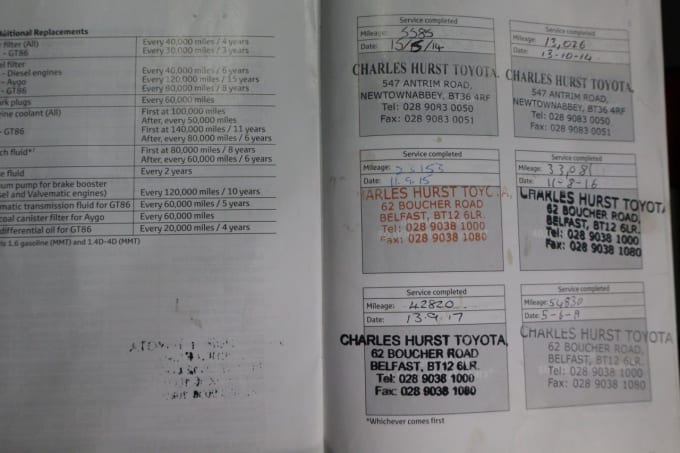 Additional Replacements
filter (All) Every 40,000 miles / 4 years
- GT86 Every 30,000 miles / 3 years
filter
- Diesel engines Every 40,000 miles / 6 years
- Aygo Every 120,000 miles / 15 years
- GT86 Every 80,000 miles / 8 years
plugs Every 60,000 miles
coolant (All) First at 100,000 miles
After, every 50,000 miles
- GT86 First at 140,000 miles / 11 years
After, every 80,000 miles / 6 years
fluid*¹ First at 80,000 miles / 8 years
After, every 60,000 miles / 6 years
fluid Every 2 years
pump for brake booster
and Valvematic engines) Every 120,000 miles / 10 years
transmission fluid for GT86 Every 60,000 miles / 5 years
canister filter for Aygo Every 60,000 miles
differential oil for GT86 Every 20,000 miles / 4 years
1.6 gasoline (MMT) and 1.4D-4D (MMT)
Service completed
Mileage: 5585
Date: 15/5/14
CHARLES HURST TOYOTA,
547 ANTRIM ROAD,
NEWTOWNABBEY, BT36 4RF
Tel: 028 9083 0050
Fax: 028 9083 0051
Service completed
Mileage: 13,026
Date: 13-10-14
CHARLES HURST TOYOTA,
547 ANTRIM ROAD,
NEWTOWNABBEY, BT36 4RF
Tel: 028 9083 0050
Fax: 028 9083 0051
Service completed
Mileage:
Date: 11.9.15
CHARLES HURST TOYOTA,
62 BOUCHER ROAD,
BELFAST, BT12 6LR.
Tel: 028 9038 1000
Fax: 028 9038 1080
Service completed
Mileage: 33,081
Date: 11-8-16
CHARLES HURST TOYOTA,
62 BOUCHER ROAD,
BELFAST, BT12 6LR.
Tel: 028 9038 1000
Fax: 028 9038 1080
Service completed
Mileage: 42820
Date: 13.9.17
CHARLES HURST TOYOTA,
62 BOUCHER ROAD
BELFAST, BT12 6LR.
Tel: 028 9038 1000
Fax: 028 9038 1080
Service completed
Mileage: 54830
Date:
CHARLES HURST TOYOTA
62 BOUCHER ROAD,
BELFAST, BT12 6LR.
Tel: 028 9038 1000
Fax: 028 9038 1080
*Whichever comes first